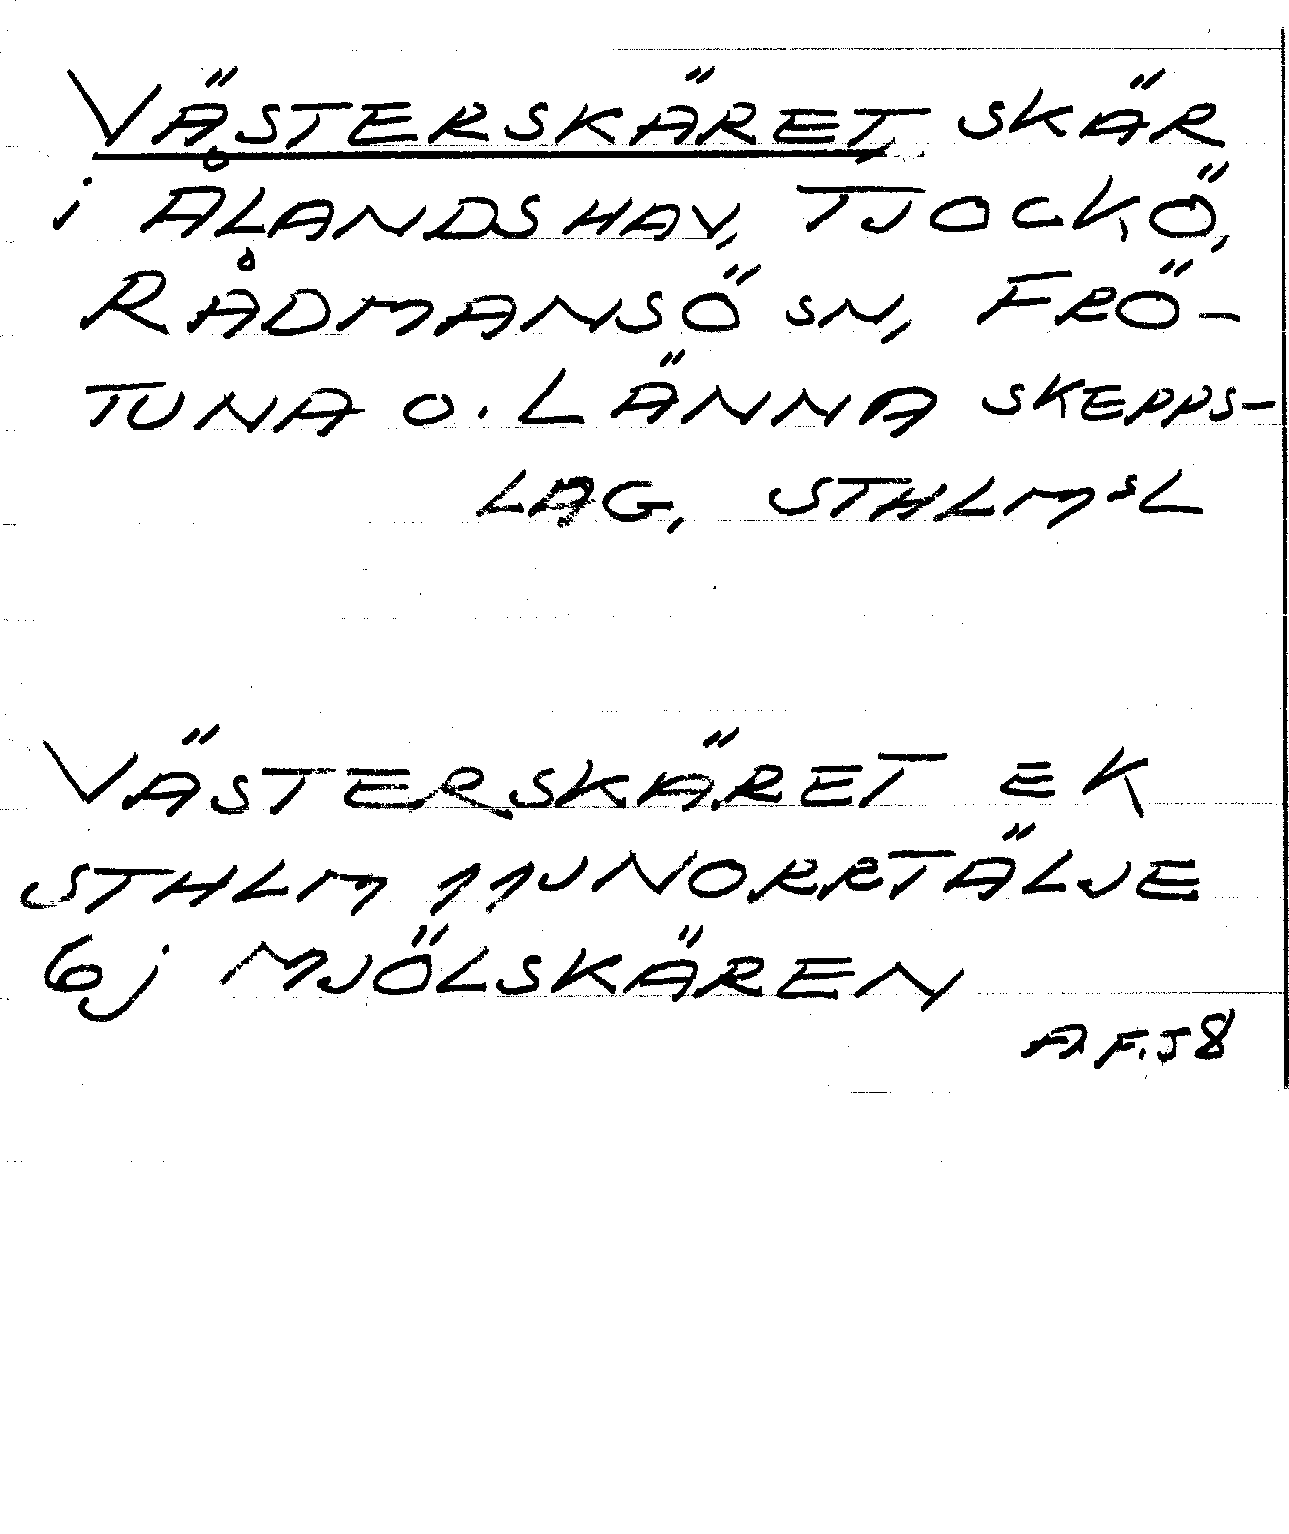 VÄSTERSKÄRET, SKÄR
i ÅLANDSHAV, TJOCKÖ,
RÅDMANSÖ SN, FRÖ-
TUNA O. LÄNNA SKEPPS-
LAG, STHLMSL
VÄSTERSKÄRET EK
STHLM 11J NORRTÄLJE
6j MJÖLSKÄREN
A F.J 8